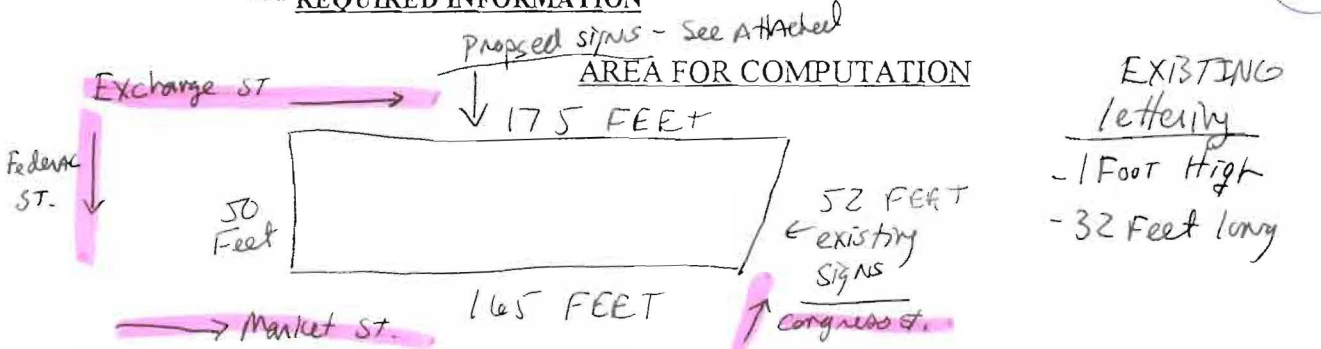 REQUIRED INFORMATION
Propsed signs - See Attached
AREA FOR COMPUTATION
Exchange ST
175 FEET
Federal
ST.
50
Feet
52 FEET
existing
signs
165 FEET
Market St.
Congress St.
EXISTING
lettering
- 1 Foot High
- 32 Feet long